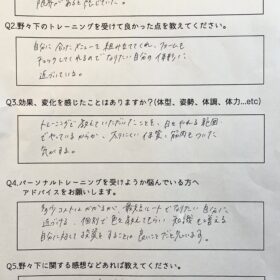 Q2.野々下のトレーニングを受けて良かった点を教えてください。
自分に合ったメニューを組み立ててくれ、フォームも
チェックしてくれるので なりたい自分の体型に
近づいている。
Q3.効果、変化を感じたことはありますか?(体型、姿勢、体調、体力…etc)
トレーニングで教えていただいたことを、自宅でやれる範囲
でやっているからか、太りにくい体質、筋肉もついた
気がする。
Q4.パーソナルトレーニングを受けようか悩んでいる方へ
アドバイスをお願いします。
多少コストはかかるが、最短ルートで なりたい自分に
近づける。個別で色々教えてもらい、知識も増える
自分に対して投資をすることは良いことだと思います。
Q5.野々下に関する感想などあれば教えてください。